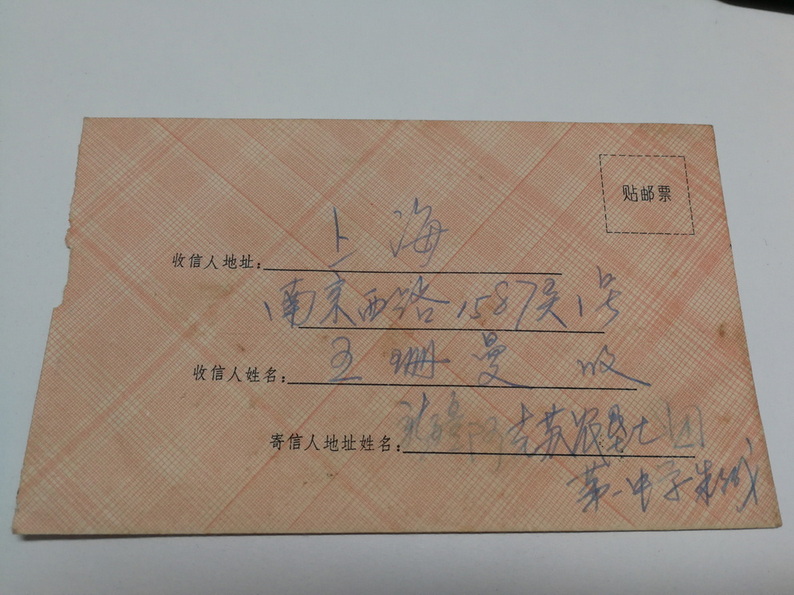 贴邮票
上海
收信人地址：
南京西路1587弄1号
收信人姓名：王珊曼 收
寄信人地址姓名：新疆阿克苏农垦七团
第一中学朱